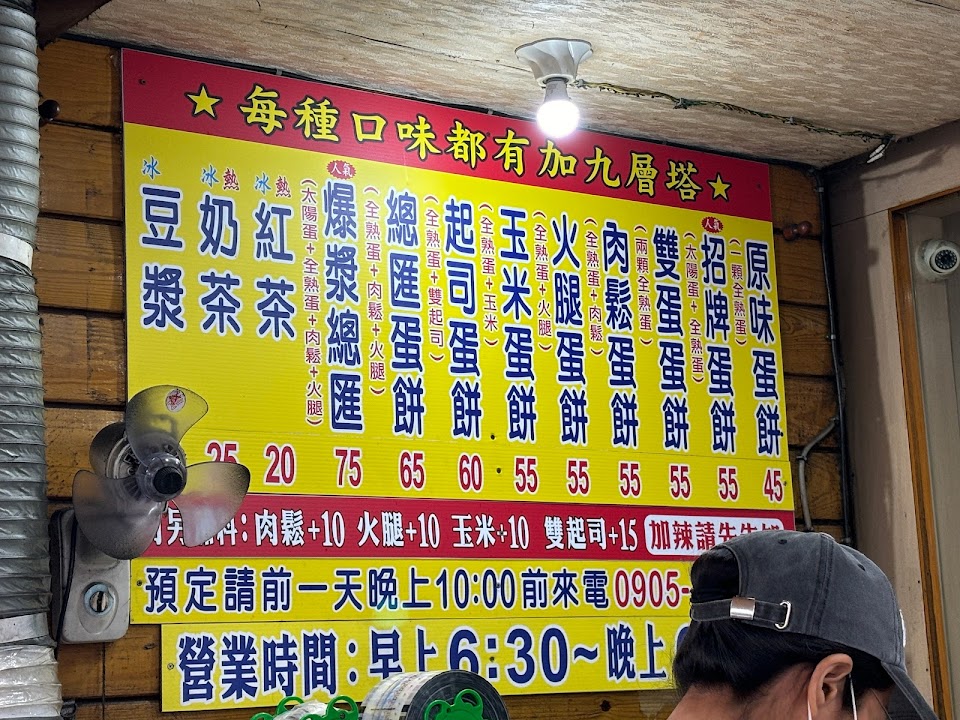 ★每種口味都有加九層塔★
原味蛋餅
(一顆全熟蛋)
45
人氣
招牌蛋餅
(太陽蛋+全熟蛋)
55
雙蛋蛋餅
(兩顆全熟蛋)
55
肉鬆蛋餅
(全熟蛋+肉鬆)
55
火腿蛋餅
(全熟蛋+火腿)
55
玉米蛋餅
(全熟蛋+玉米)
55
起司蛋餅
(全熟蛋+雙起司)
60
總匯蛋餅
(全熟蛋+肉鬆+火腿)
65
人氣
爆漿總匯
(太陽蛋+全熟蛋+肉鬆+火腿)
75
冰熱
紅茶
20
冰熱
奶茶
25
冰
豆漿
料:肉鬆+10 火腿+10 玉米+10 雙起司+15 加辣請先
預定請前一天晚上10:00前來電0905-
營業時間:早上6:30~晚上